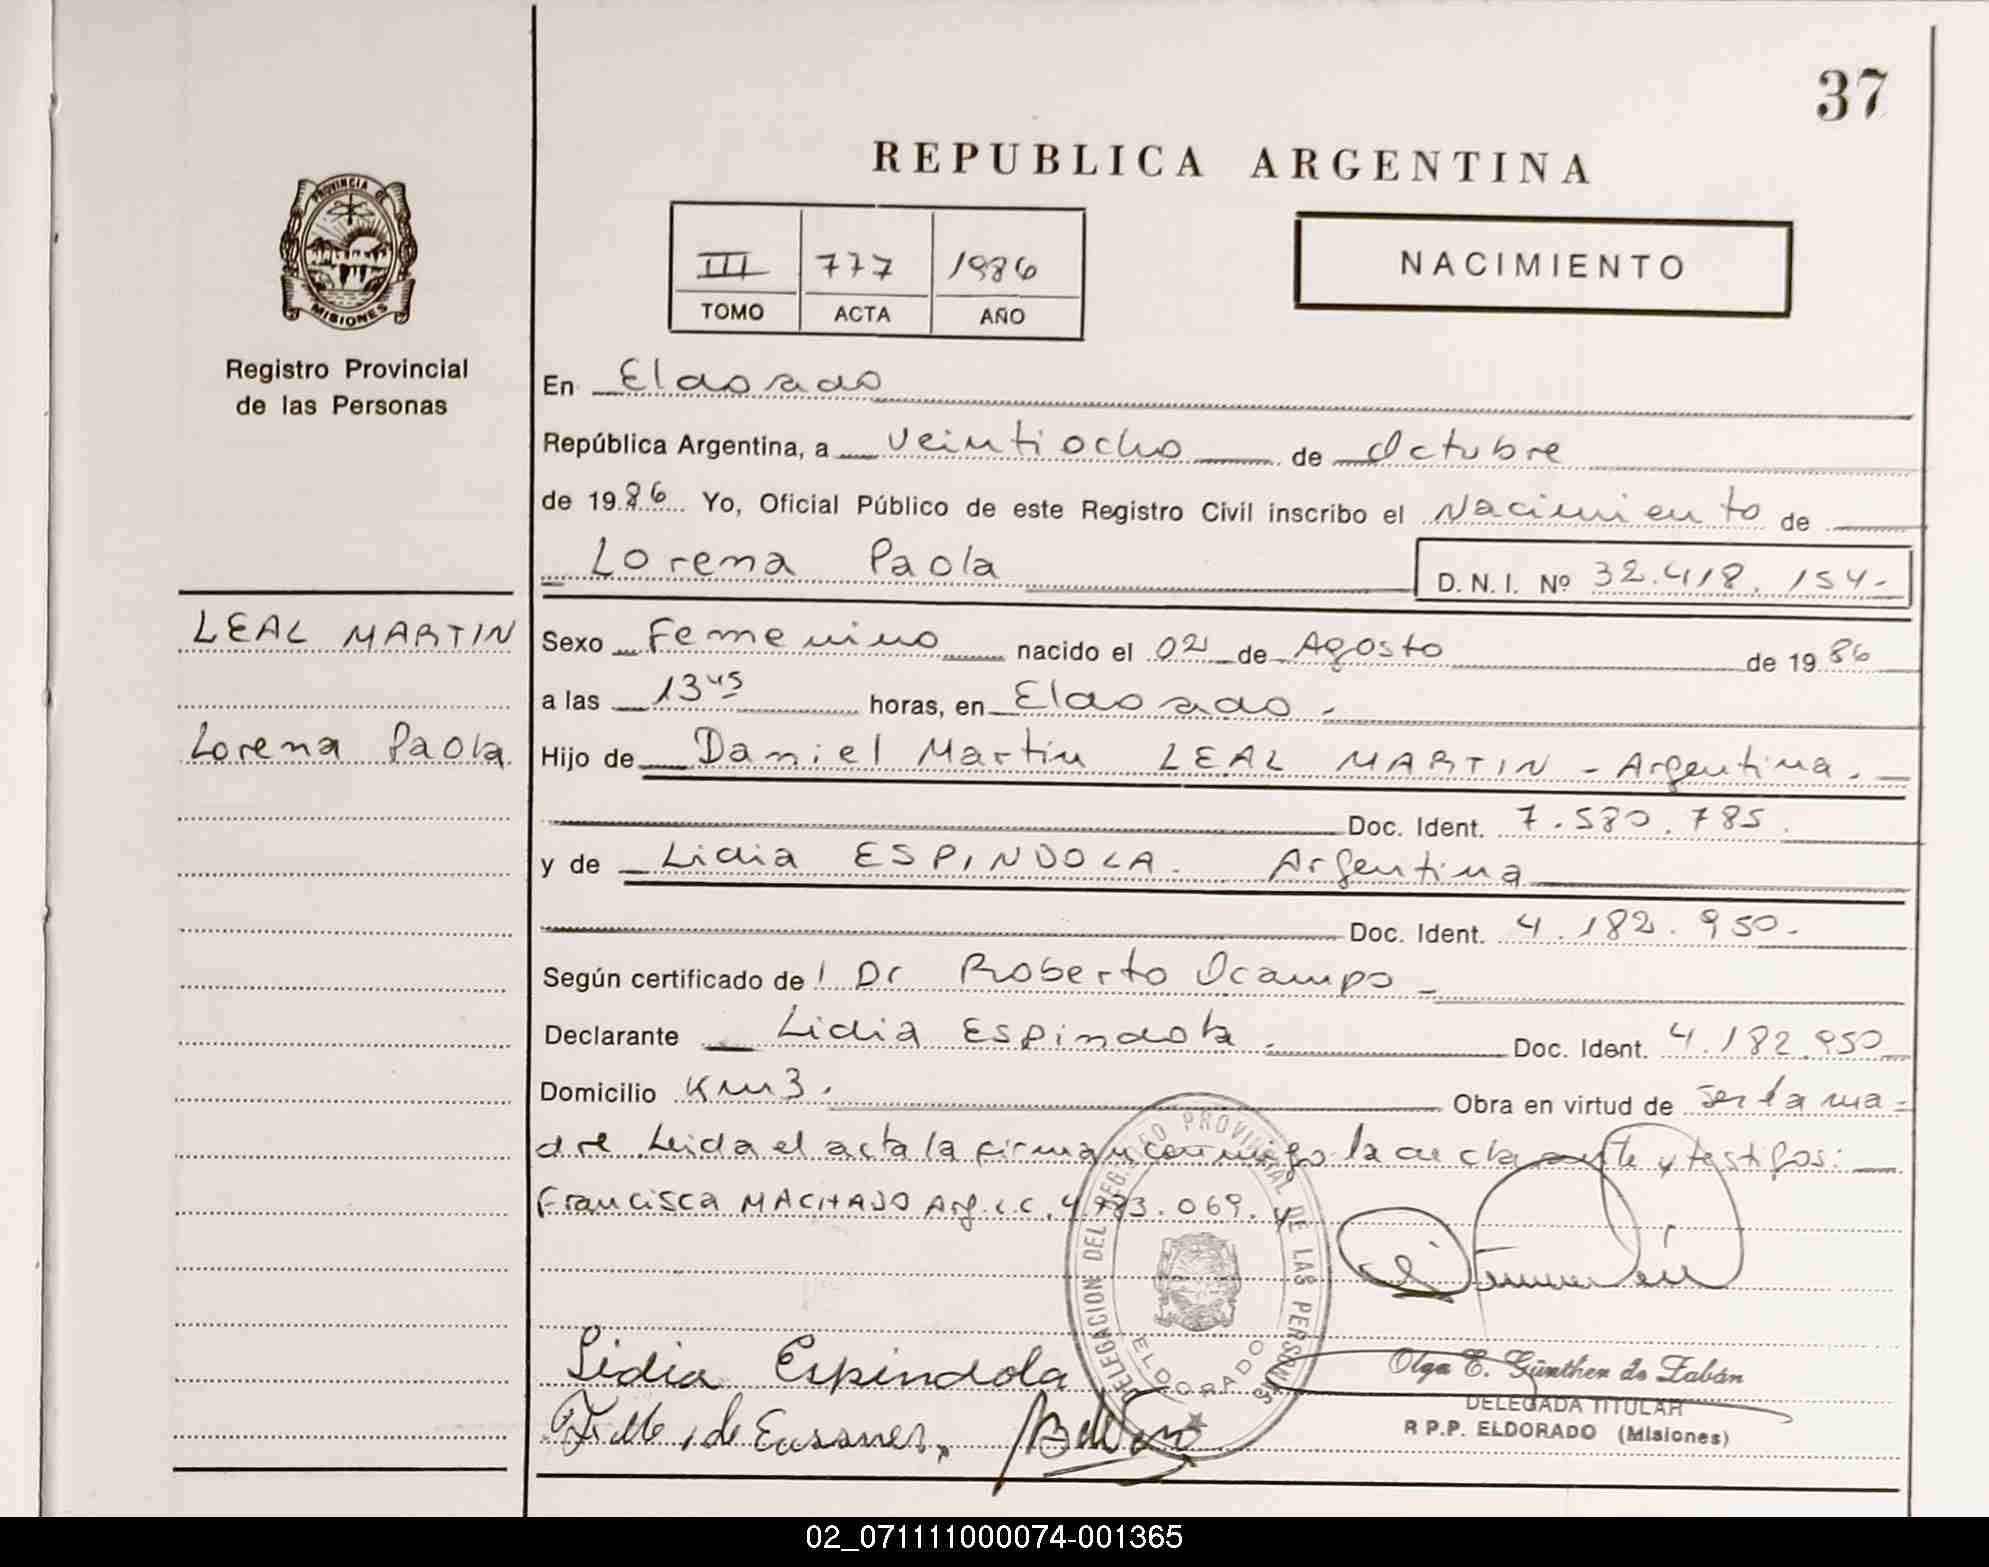 37
REPUBLICA ARGENTINA
PROVINCIA DE
MISIONES
Registro Provincial
de las Personas
III 777 1986
TOMO ACTA AÑO
NACIMIENTO
En Eldorado
República Argentina, a veintiocho de Octubre
de 1986 Yo, Oficial Público de este Registro Civil inscribo el Nacimiento de
Lorena Paola D. N. I. Nº 32.418.154-
LEAL MARTIN
Lorena Paola
Sexo Femenino nacido el 02 de Agosto de 1986
a las 13 45 horas, en Eldorado.
Hijo de Daniel Martin LEAL MARTIN - Argentina.
Doc. Ident. 7.580.785.
y de Lidia ESPINDOLA. Argentina
Doc. Ident. 4.182.950.-
Según certificado de l Dr Roberto Ocampo -
Declarante Lidia Espindola. Doc. Ident. 4.182.950
Domicilio Km 3. Obra en virtud de ser la ma-
dre. Leida el acta la firman conmigo la declarante y testigos:
Francisca MACHADO Arg. L.C. 4.783.069. y
DELEGACION DEL REGISTRO PROVINCIAL DE LAS PERSONAS
ELDORADO
Lidia Espindola
Olga E. Günther de Zabán
DELEGADA TITULAR
R P.P. ELDORADO (Misiones)
02_071111000074-001365